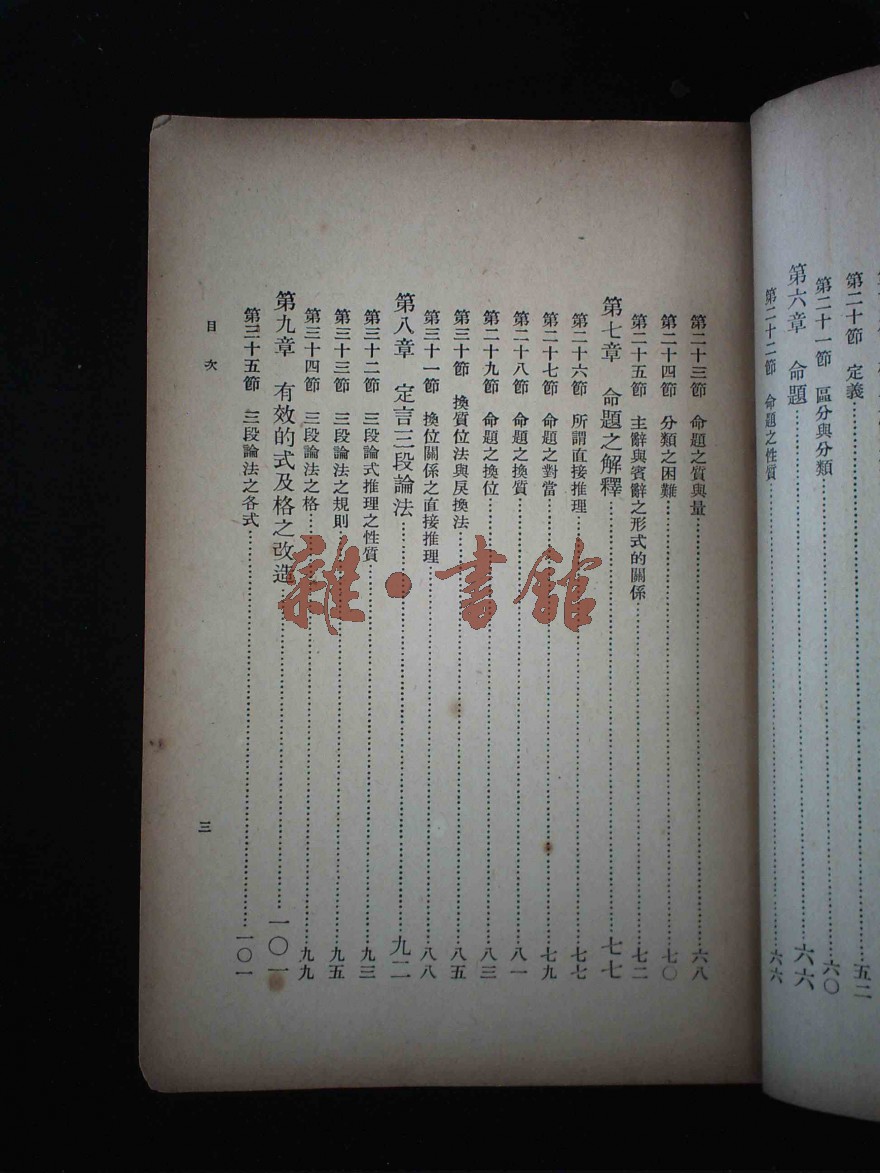 第二十節 定義……五二
第二十一節 區分與分類……六〇
第六章 命題……六六
第二十二節 命題之性質……六六
第二十三節 命題之質與量……六八
第二十四節 分類之困難……七〇
第二十五節 主辭與賓辭之形式的關係……七二
第七章 命題之解釋……七七
第二十六節 所謂直接推理……七七
第二十七節 命題之對當……七九
第二十八節 命題之換質……八一
第二十九節 命題之換位……八三
第三十節 換質位法與戾換法……八五
第三十一節 換位關係之直接推理……八八
第八章 定言三段論法……九二
第三十二節 三段論式推理之性質……九三
第三十三節 三段論法之規則……九五
第三十四節 三段論法之格……九九
第九章 有效的式及格之改造……一〇一
第三十五節 三段論法之各式……一〇一
目次
三
雜·書館